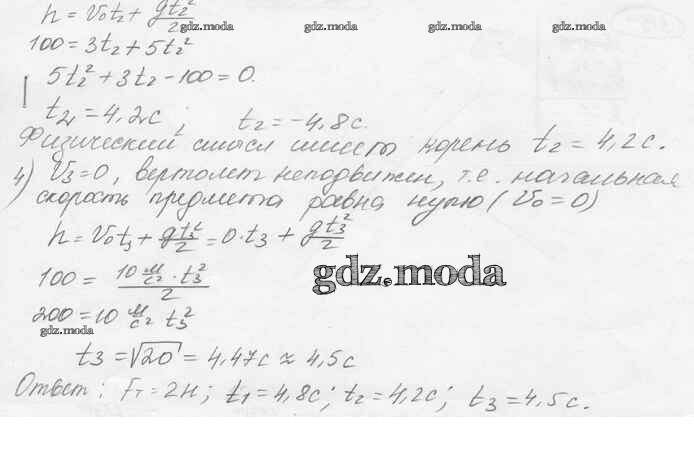 h = V₀t₂ + gt₂²/2
gdz.moda gdz.moda gdz.moda
100 = 3t₂ + 5t₂²
5t₂² + 3t₂ - 100 = 0.
t₂₁ = 4,2с; t₂ = -4,8с.
Физический смысл имеет корень t₂ = 4,2с.
4) V₃ = 0, вертолет неподвижен, т.е. начальная
скорость предмета равна нулю (V₀ = 0)
h = V₀t₃ + gt₃²/2 = 0·t₃ + gt₃²/2
100 = 10 м/с² · t₃² / 2
gdz.moda
200 = 10 м/с² t₃²
gdz.moda
t₃ = √20 = 4,47с ≈ 4,5с
Ответ: Fт = 2Н; t₁ = 4,8с; t₂ = 4,2с; t₃ = 4,5с.